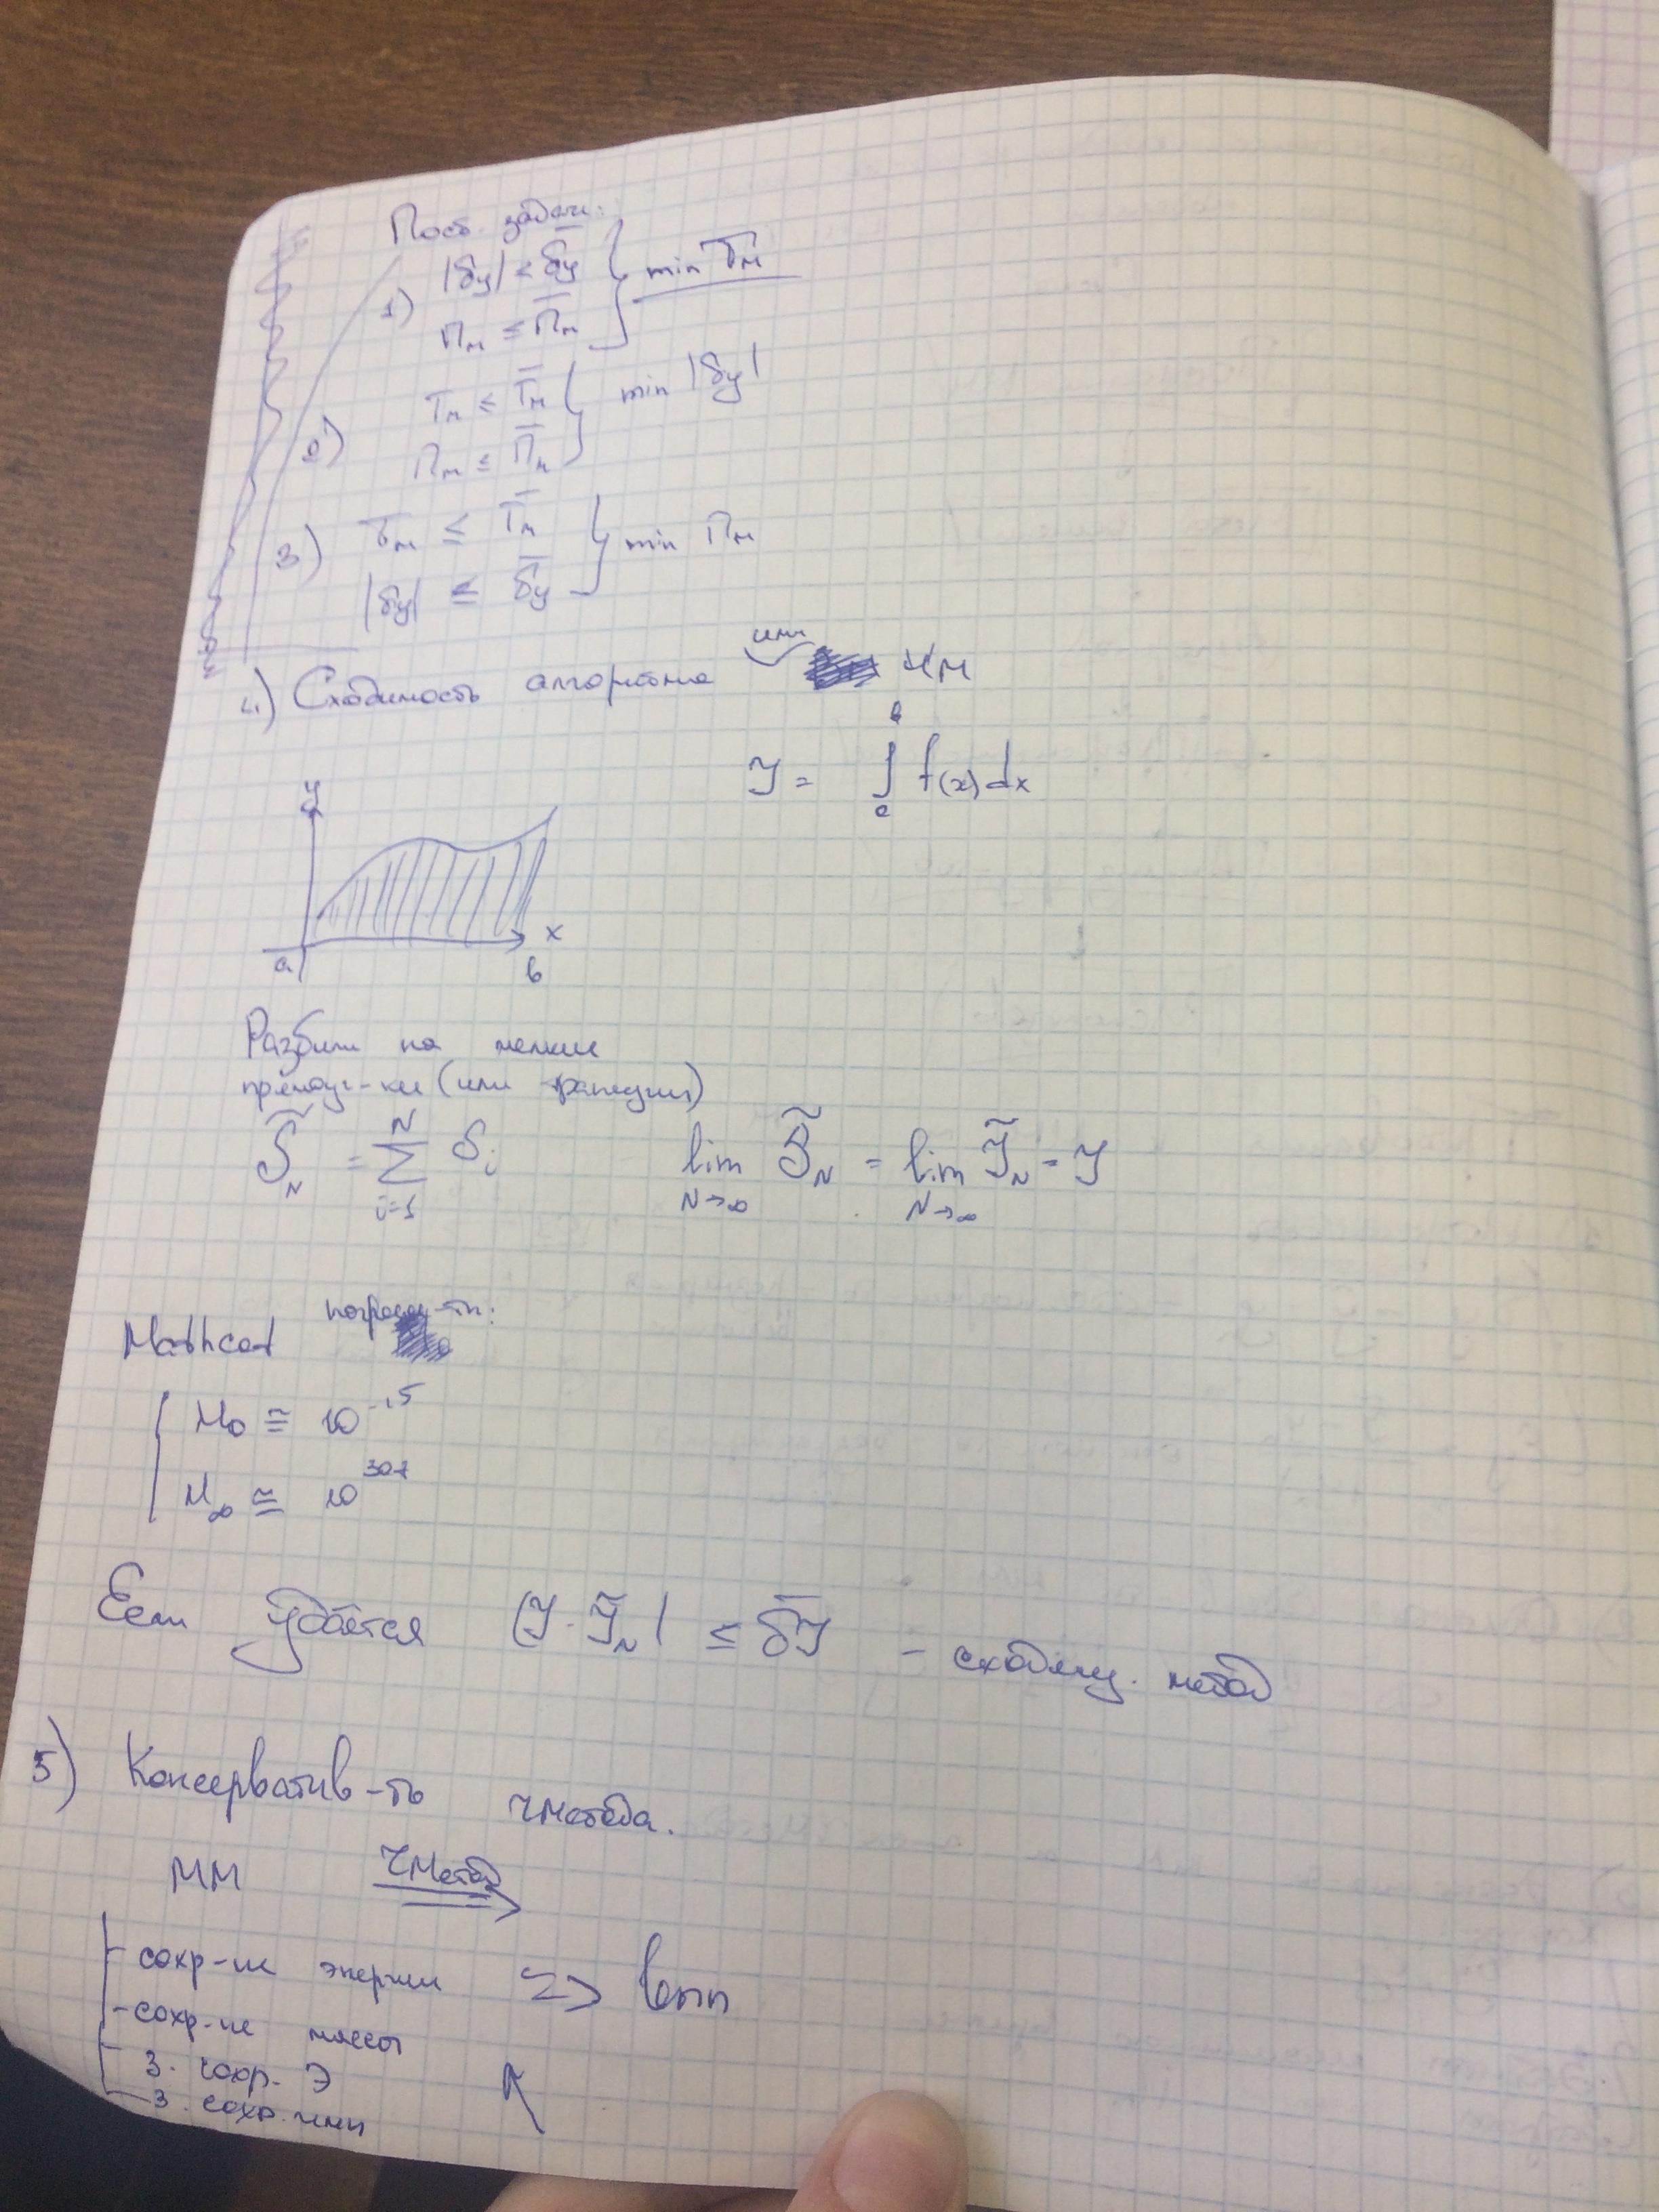 Пост. задачи:
1) |δy| ≤ δ̅y̅ } min Tм
Пм ≤ П̅м
2) Tм ≤ T̅м } min |δy|
Пм ≤ П̅м
3) Tм ≤ T̅м } min Пм
|δy| ≤ δ̅y̅
4) Сходимость алгоритма или ЧМ
J = ∫ₐᵇ f(x)dx
y
x
a b
Разбили на мелкие
прямоуг-ки (или трапеции)
S̃_N = Σ_{i=1}^{N} S_i lim_{N→∞} S̃_N = lim_{N→∞} J̃_N = J
Mathcad погреш-ти:
M₀ ≅ 10⁻¹⁵
M∞ ≅ 10³⁰⁷
Если удаётся |J - J̃_N| ≤ δ̅J̅ - сходящ. метод
5) Консерватив-ть ЧМетода.
ММ ЧМетод
- сохр-ие энергии => Вып
- сохр-ие массы
- З. сохр. Э
- З. сохр. имп